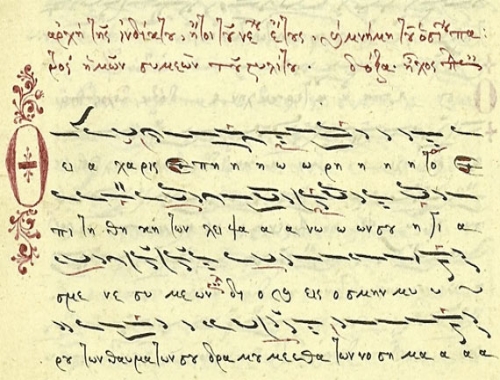 ἀρχὴ τῆς ἰνδίκτου, ἤτοι τοῦ νέου ἔτους. ἡ μνήμη τοῦ ὁσίου πα:
τρὸς ἡμῶν συμεὼν τοῦ στυλίτου. δόξα. ἦχος πλ
Θ ει α χα ρις ε πη η η ω ω ρη η η η το ε
πι τη θη κη των λει ψα α α νω ω ων σου η γι α
σμε νε συ με ων δι ο ϗ εις ο σμην μυ υ
ρου των θαυμα των σου δρα μου με ε θα των νο ση μα α α α